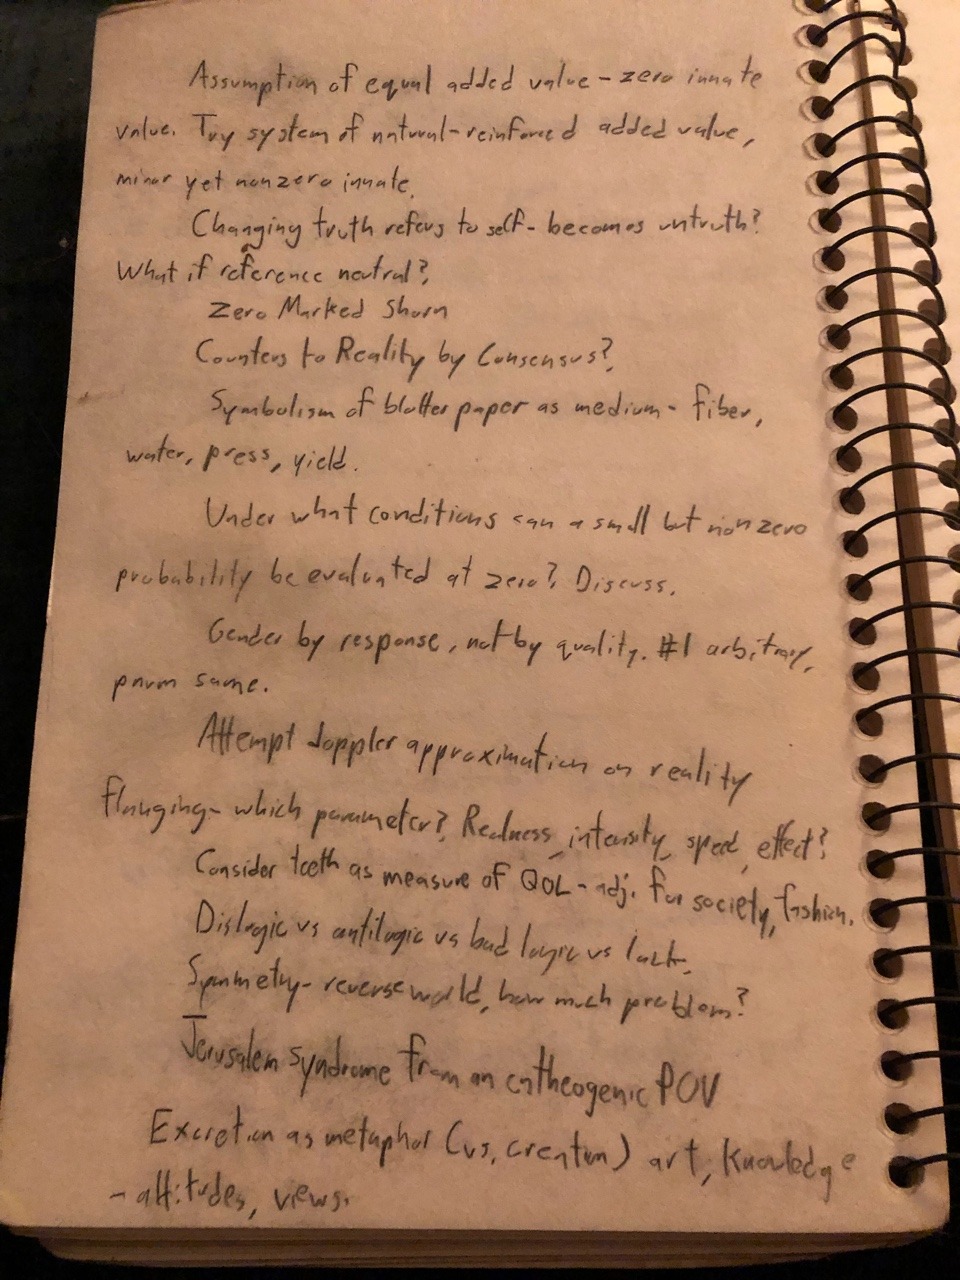 Assumption of equal added value - zero innate
value. Try system of natural-reinforced added value,
minor yet nonzero innate.
Changing truth refers to self - becomes untruth?
What if reference neutral?
Zero Marked Shorn
Counters to Reality by Consensus?
Symbolism of blotter paper as medium - fiber,
water, press, yield.
Under what conditions can a small but nonzero
probability be evaluated at zero? Discuss.
Gender by response, not by quality. #1 arbitrary,
same.
Attempt doppler approximation on reality
flanging - which parameter? Realness, intensity, speed, effect?
Consider teeth as measure of QOL - adj. for society, fashion.
Dislogic vs antilogic vs bad logic vs lack.
Symmetry - reverse world, how much problem?
Jerusalem syndrome from an entheogenic POV
Excretion as metaphor (vs. creation) art, knowledge
- attitudes, views.